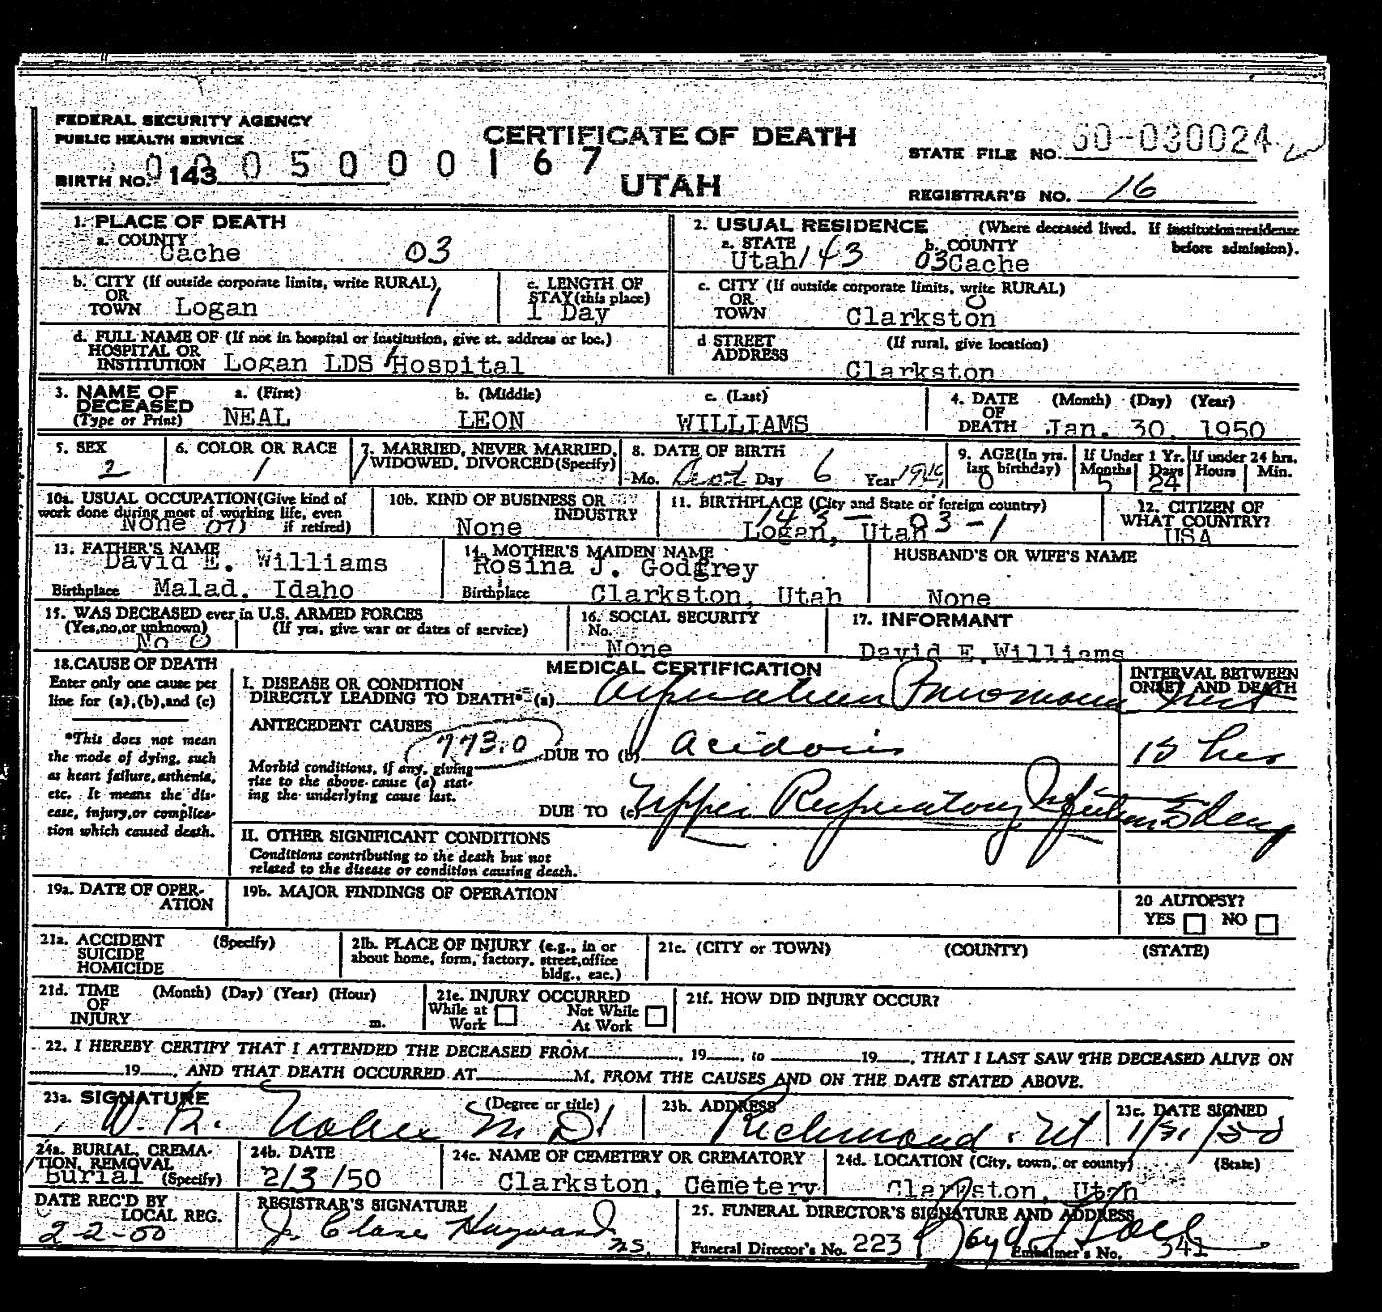 FEDERAL SECURITY AGENCY
PUBLIC HEALTH SERVICE
CERTIFICATE OF DEATH
UTAH
STATE FILE NO. 50-030024
BIRTH NO. 143 05000167
REGISTRAR'S NO. 16
1. PLACE OF DEATH
a. COUNTY
Cache 03
2. USUAL RESIDENCE (Where deceased lived. If institution: residence before admission).
a. STATE b. COUNTY
Utah 143 03 Cache
b. CITY (If outside corporate limits, write RURAL)
OR
TOWN Logan 1
c. LENGTH OF
STAY (this place)
1 Day
c. CITY (If outside corporate limits, write RURAL)
OR
TOWN Clarkston 0
d. FULL NAME OF (If not in hospital or institution, give st. address or loc.)
HOSPITAL OR
INSTITUTION Logan LDS Hospital
d STREET (If rural, give location)
ADDRESS
Clarkston
3. NAME OF DECEASED (Type or Print)
a. (First) b. (Middle) c. (Last)
NEAL LEON WILLIAMS
4. DATE OF DEATH (Month) (Day) (Year)
Jan. 30, 1950
5. SEX
2
6. COLOR OR RACE
1
7. MARRIED, NEVER MARRIED,
WIDOWED, DIVORCED (Specify)
1
8. DATE OF BIRTH
Mo. Day 6 Year 1949
9. AGE (In yrs. last birthday)
0
If Under 1 Yr.
Months Days
5 24
If under 24 hrs.
Hours Min.
10a. USUAL OCCUPATION (Give kind of
work done during most of working life, even
if retired)
None
10b. KIND OF BUSINESS OR
INDUSTRY
None
11. BIRTHPLACE (City and State or foreign country)
143 - 03 - 1
Logan, Utah
12. CITIZEN OF
WHAT COUNTRY?
USA
13. FATHER'S NAME
David E. Williams
Birthplace Malad, Idaho
14. MOTHER'S MAIDEN NAME
Rosina J. Godfrey
Birthplace Clarkston, Utah
HUSBAND'S OR WIFE'S NAME
None
15. WAS DECEASED ever in U.S. ARMED FORCES
(Yes, no, or unknown) (If yes, give war or dates of service)
No 0
16. SOCIAL SECURITY
No.
None
17. INFORMANT
David E. Williams
18. CAUSE OF DEATH
Enter only one cause per
line for (a), (b), and (c)
*This does not mean
the mode of dying, such
as heart failure, asthenia,
etc. It means the dis-
ease, injury, or complica-
tion which caused death.
MEDICAL CERTIFICATION
INTERVAL BETWEEN
ONSET AND DEATH
I. DISEASE OR CONDITION
DIRECTLY LEADING TO DEATH* (a) Aspiration Pneumonia
ANTECEDENT CAUSES
773.0
DUE TO (b) Acidosis 15 hrs
Morbid conditions, if any, giving
rise to the above cause (a) stat-
ing the underlying cause last.
DUE TO (c) Upper Respiratory Infection 5 days
II. OTHER SIGNIFICANT CONDITIONS
Conditions contributing to the death but not
related to the disease or condition causing death.
19a. DATE OF OPER-
ATION
19b. MAJOR FINDINGS OF OPERATION
20 AUTOPSY?
YES NO
21a. ACCIDENT (Specify)
SUICIDE
HOMICIDE
21b. PLACE OF INJURY (e.g., in or
about home, form, factory, street, office
bldg., eac.)
21c. (CITY or TOWN) (COUNTY) (STATE)
21d. TIME (Month) (Day) (Year) (Hour)
OF
INJURY m.
21e. INJURY OCCURRED
While at Work Not While At Work
21f. HOW DID INJURY OCCUR?
22. I HEREBY CERTIFY THAT I ATTENDED THE DECEASED FROM , 19 , to 19 , THAT I LAST SAW THE DECEASED ALIVE ON
19 , AND THAT DEATH OCCURRED AT M, FROM THE CAUSES AND ON THE DATE STATED ABOVE.
23a. SIGNATURE (Degree or title)
M.D.
23b. ADDRESS
Richmond, Ut
23c. DATE SIGNED
1/31/50
24a. BURIAL, CREMA-
TION, REMOVAL
Burial (Specify)
24b. DATE
2/3/50
24c. NAME OF CEMETERY OR CREMATORY
Clarkston, Cemetery
24d. LOCATION (City, town, or county) (State)
Clarkston, Utah
DATE REC'D BY
LOCAL REG.
2-2-50
REGISTRAR'S SIGNATURE
25. FUNERAL DIRECTOR'S SIGNATURE AND ADDRESS
Funeral Director's No. 223
Embalmer's No. 341